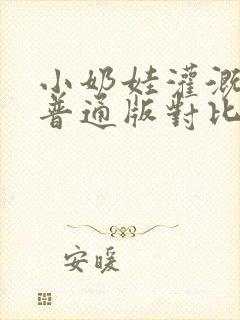 小奶娃灌溉
普通版對比
安暖